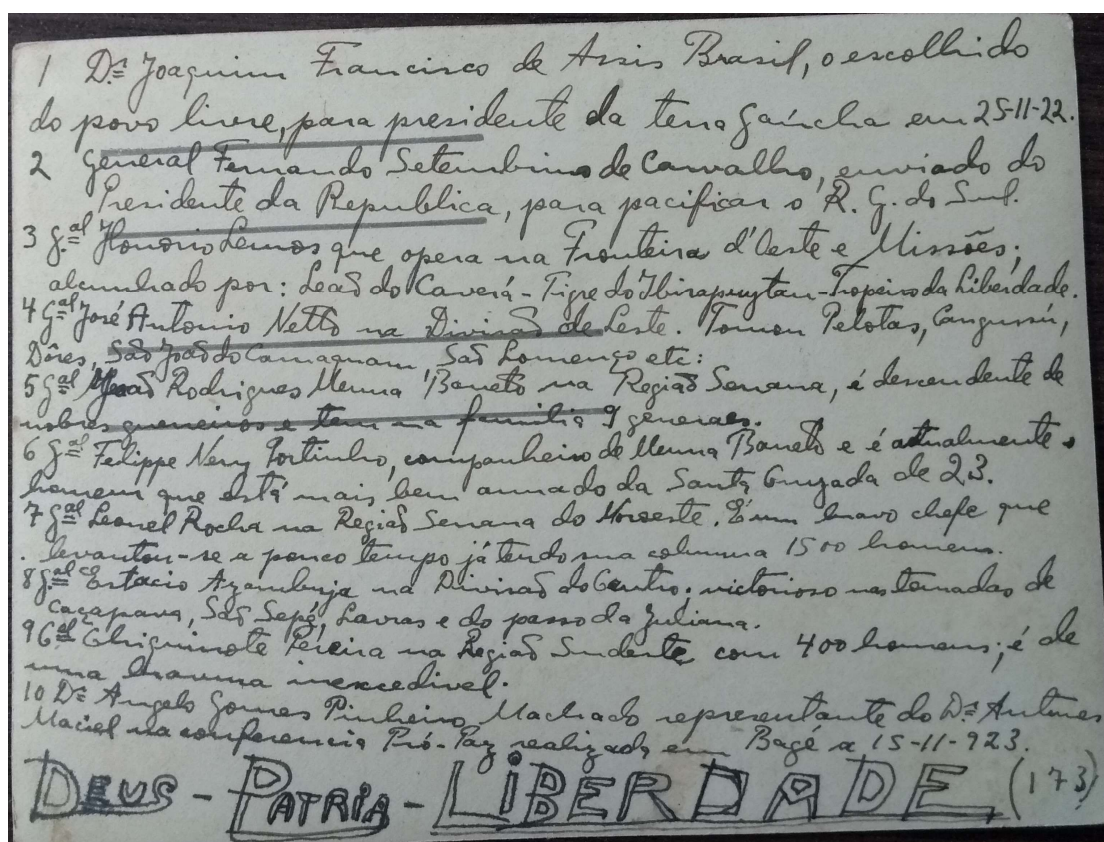 1 Dr. Joaquim Francisco de Assis Brasil, o escolhido
do povo livre, para presidente da terra gaúcha em 25-11-22.
2 General Fernando Setembrino de Carvalho, enviado do
Presidente da Republica, para pacificar o R. G. do Sul.
3 Gal Honorio Lemos que opera na Fronteira d'leste e Missões;
alcunhado por: Leaõ do Caverá - Tigre do Ibirapuytan - Tropeiro da Liberdade.
4 Gal José Antonio Netto na Divisaõ de Leste. Tomou Pelotas, Cangussú,
Dôres, Saõ Joaõ do Camaquam, Saõ Lourenço etc:
5 Gal Joaõ Rodrigues Menna Barreto na Regiaõ Serrana, é descendente de
nobres guerreiros e tem na familia 9 generaes.
6 Gal Felippe Nery Portinho, companheiro de Menna Barreto e é atualmente o
homem que está mais bem armado da Santa Cruzada de 23.
7 Gal Leonel Rocha na Regiaõ Serrana do Noroeste. É um bravo chefe que
levantou-se a pouco tempo já tendo sua columna 1500 homens.
8 Gal Estacio Azambuja na Divisaõ do Centro; victorioso nas tomadas de
Caçapava, Saõ Sepé, Lavras e do passo da Juliana.
9 Gal Chiquinote Pereira na Regiaõ Sudeste, com 400 homens; é de
uma bravura inexcedivel.
10 Dr. Angelo Gomes Pinheiro Machado representante do Dr. Antunes
Maciel na conferencia Pró-Paz realizada em Bagé a 15-11-923.
DEUS - PATRIA - LIBERDADE (173)